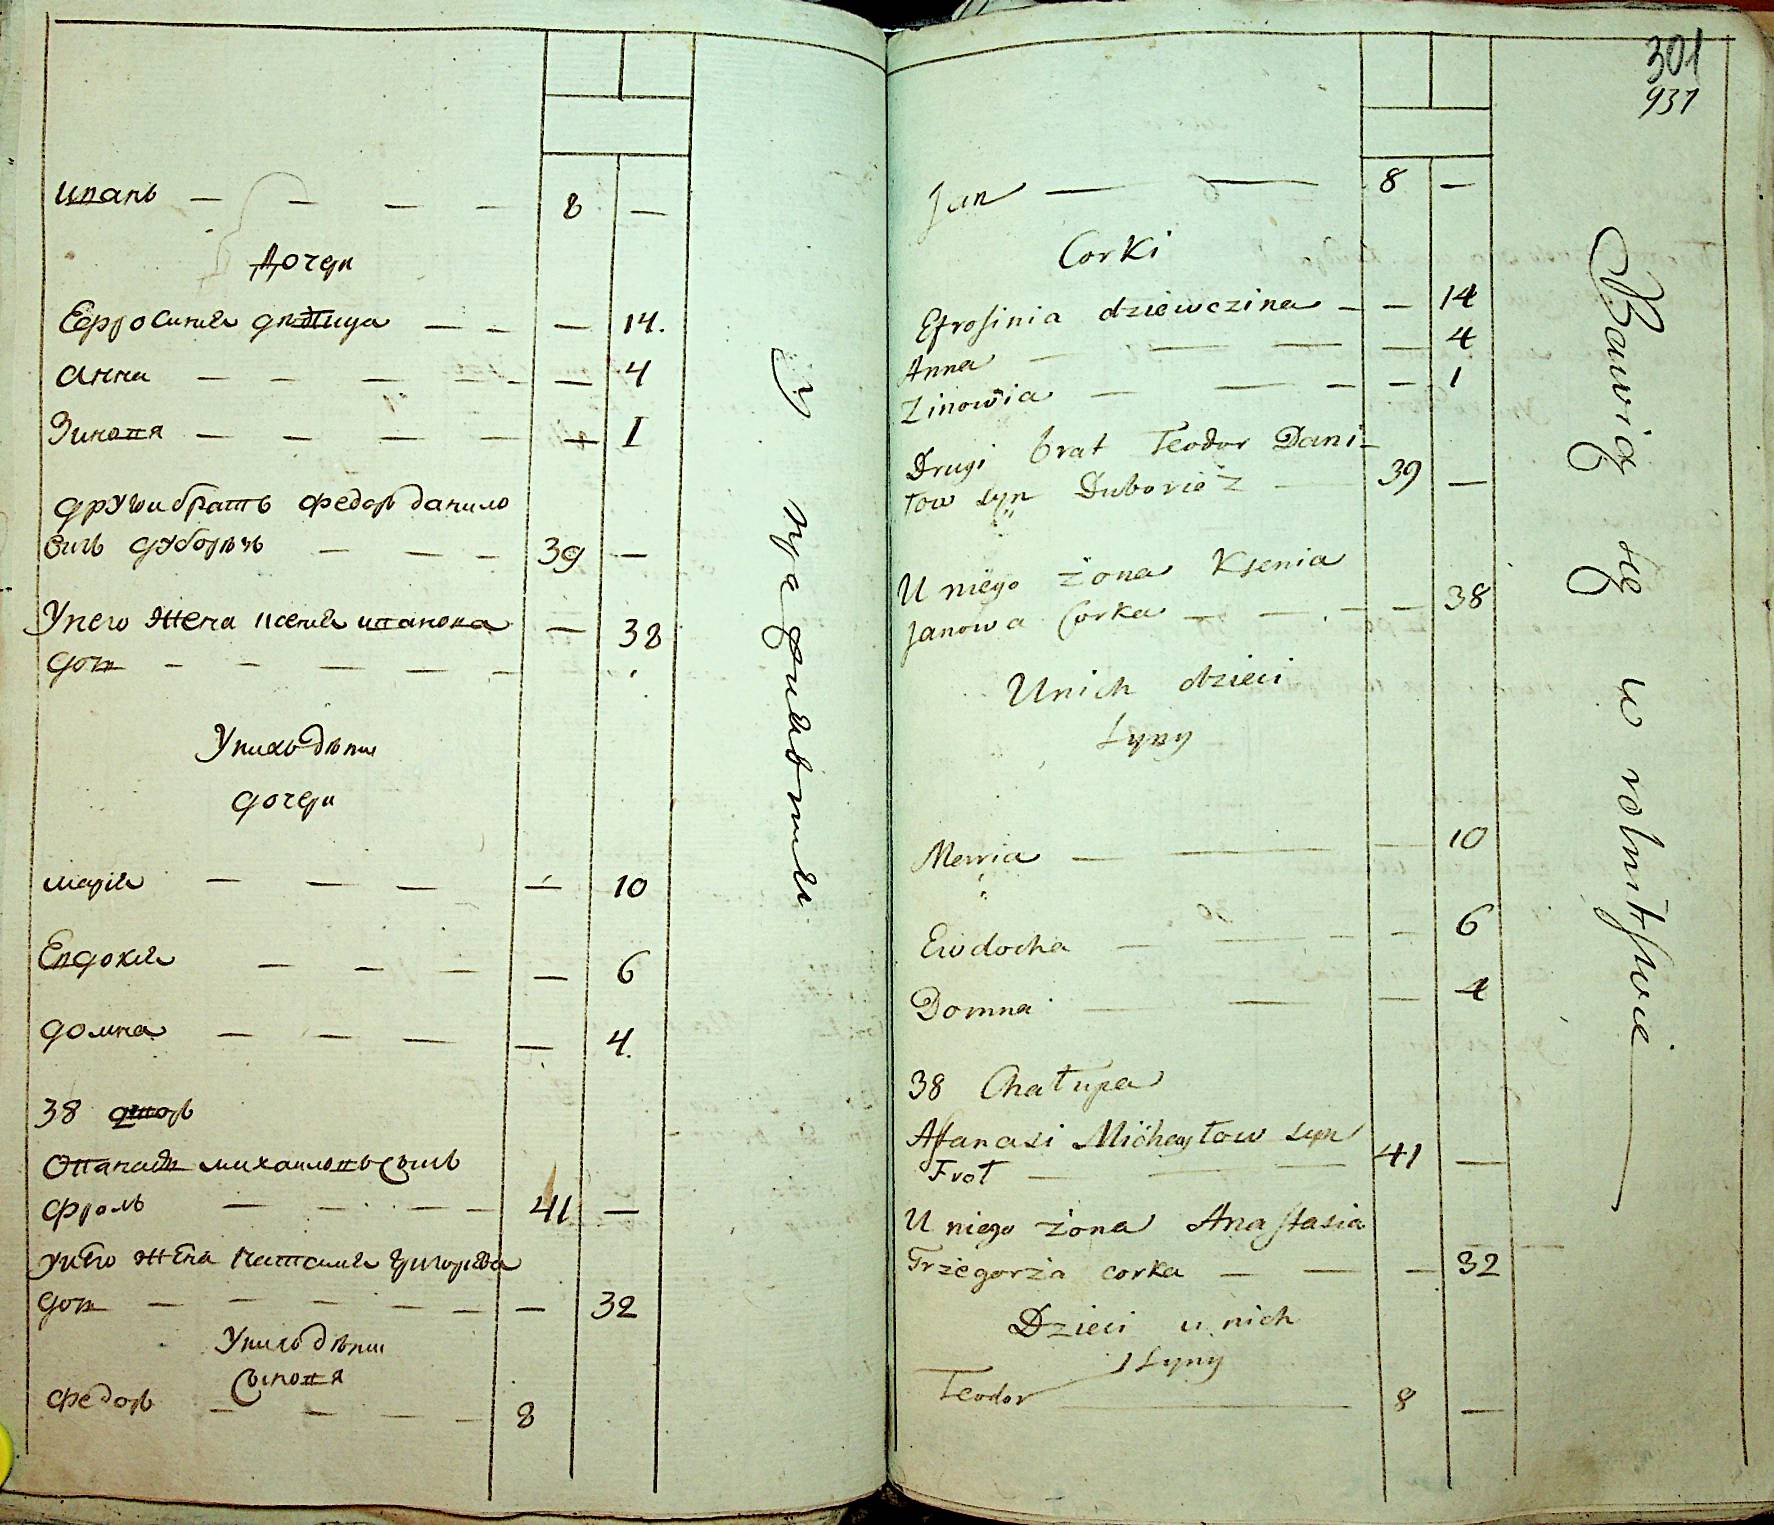 иванъ — — — — 8 —
дочери
Ефросиния дѣвица — — — 14.
анна — — — — — — 4
Зиновия — — — — — 1
други братъ Федоръ данило
вичъ — — — 39 —
У него жена ксения иванова — 38
дочь — — — — —
У нихъ дѣти
дочери
мария — — — — 10
Евдокия — — — — 6
домна — — — — 4.
38 дворъ
Афанасѣи михаиловъ сынъ
фролъ — — — — 41 —
у него жена настасия григорьева
дочь — — — — — — 32
У нихъ дѣти
Сыновя
Федоръ — — — — 8
301
931
Jan — — 8 —
Corki
Efrosinia dziewczina — — 14
Anna — — — — 4
Zinowia — — — — 1
Drugi brat Teodor Dani-
łow syn — 39 —
U niego żona Ksenia
Janowa Corka — — — — 38
U nich dzieci
Syny
Marria — — — 10
Ewdocha — — — — 6
Domna — — — 4
38 Chałupa
Afanasi Michayłow syn
Froł — — — 41 —
U niego żona Anastasia
Grzegorża corka — — — 32
Dzieci u nich
Syny
Teodor — 8 —
Bawią się w rolnitstwie